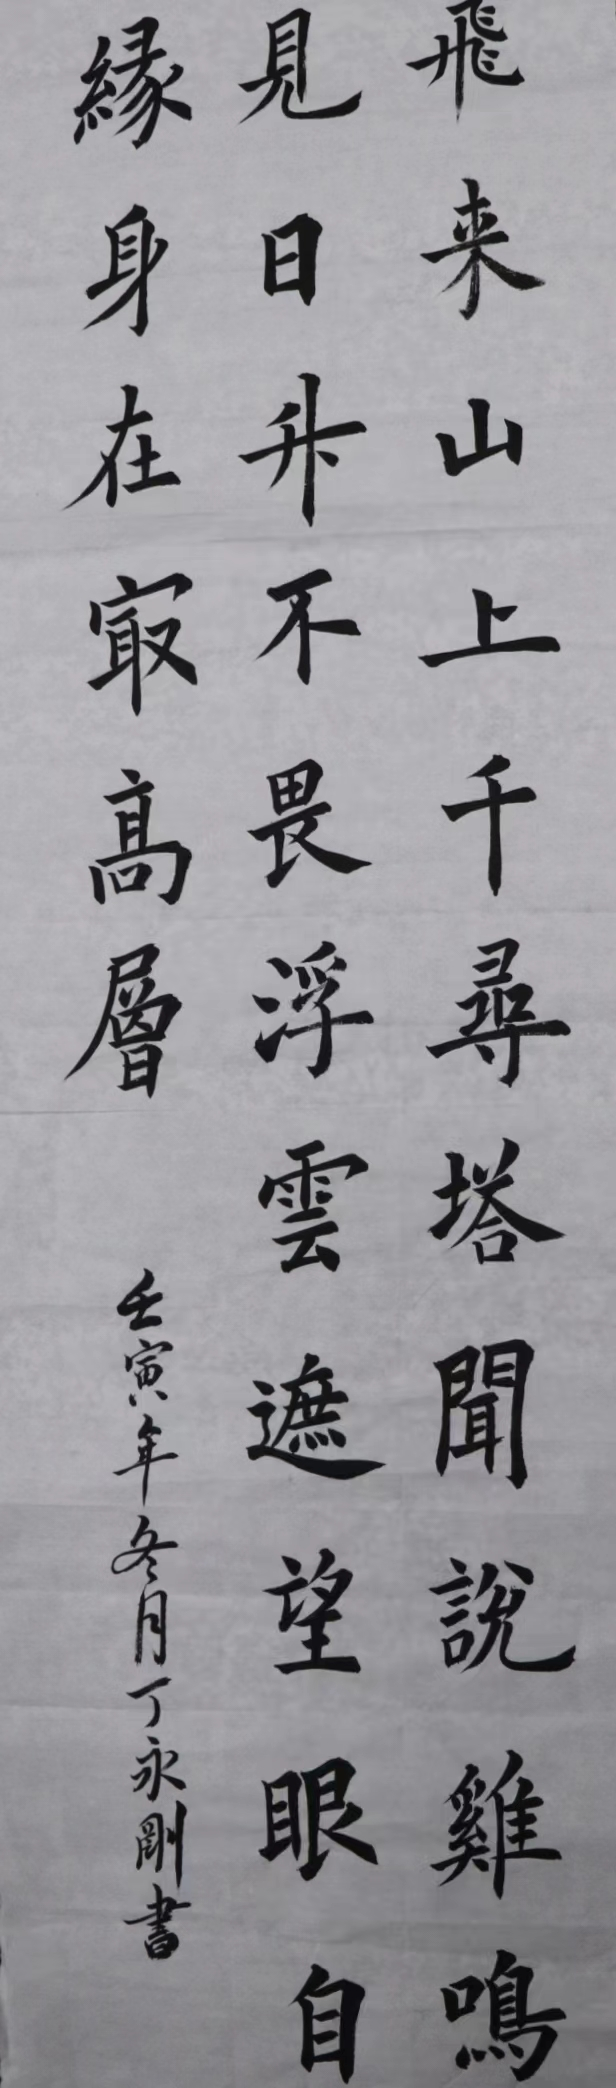 飛来山上千尋塔聞說雞鳴
見日升不畏浮雲遮望眼自
緣身在冣高層
壬寅年冬月丁永剛書